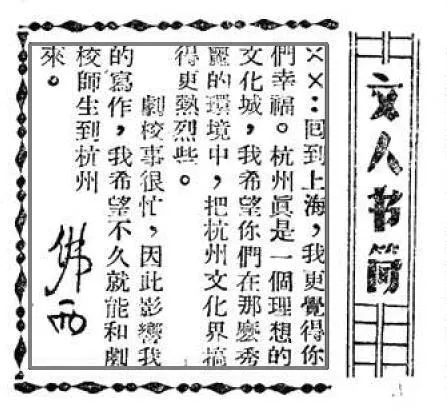 文人书简
××：回到上海，我更覺得你
們幸福。杭州眞是一個理想的
文化城，我希望你們在那麽秀
麗的環境中，把杭州文化界搞
得更熱烈些。
劇校事很忙，因此影響我
的寫作，我希望不久就能和劇
校師生到杭州
來。
佛西